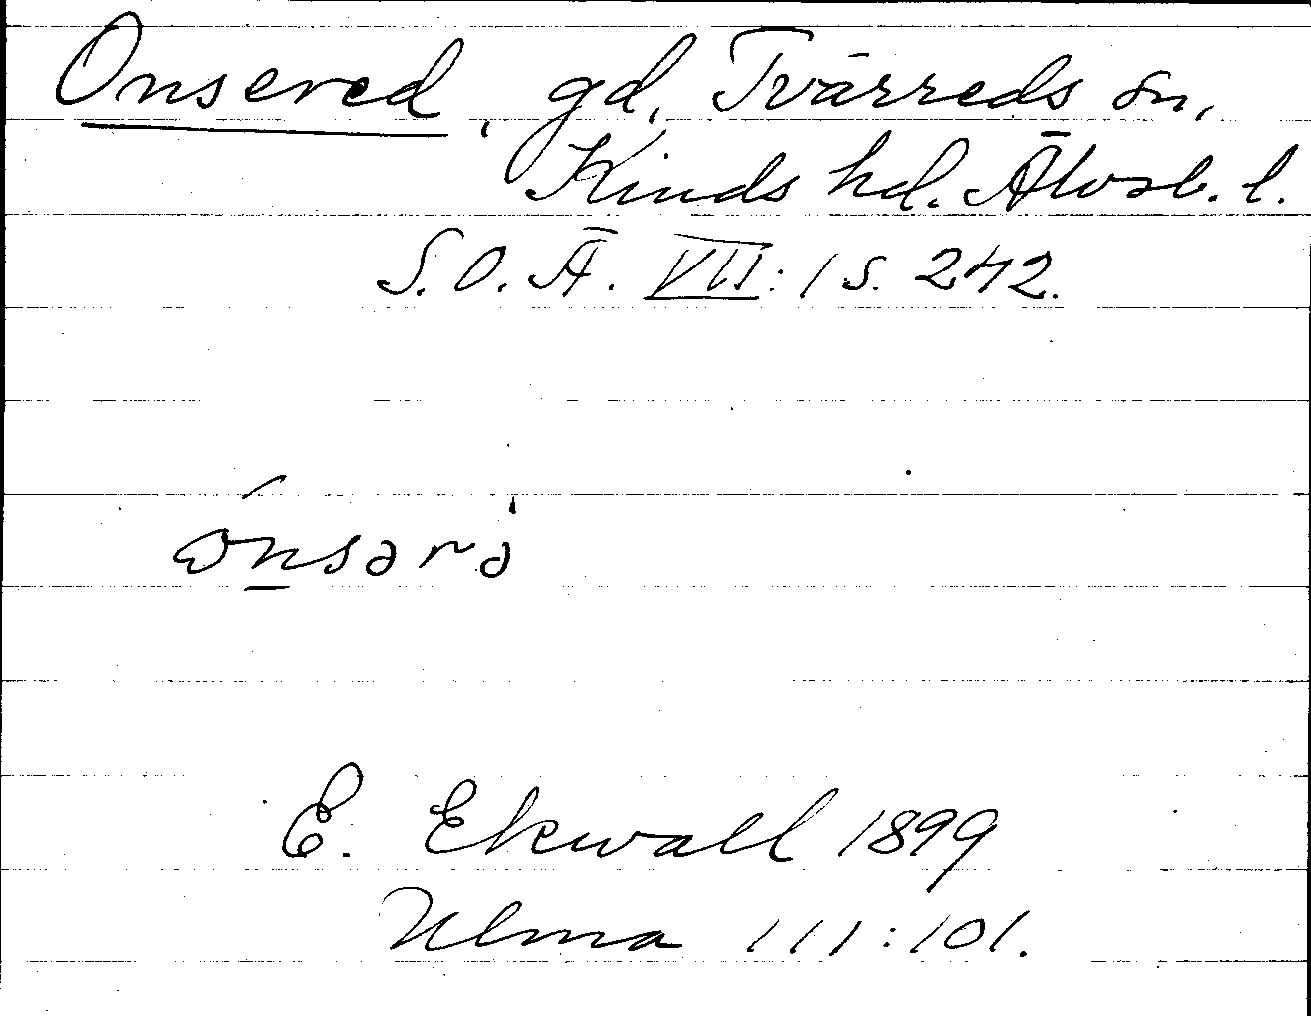 Onsered, gd, Tvärreds sn,
Kinds hd. Älvsb. l.
S.O.Ä. VII:1 s. 242.
E. Ekwall 1899
Ulma 111:101.